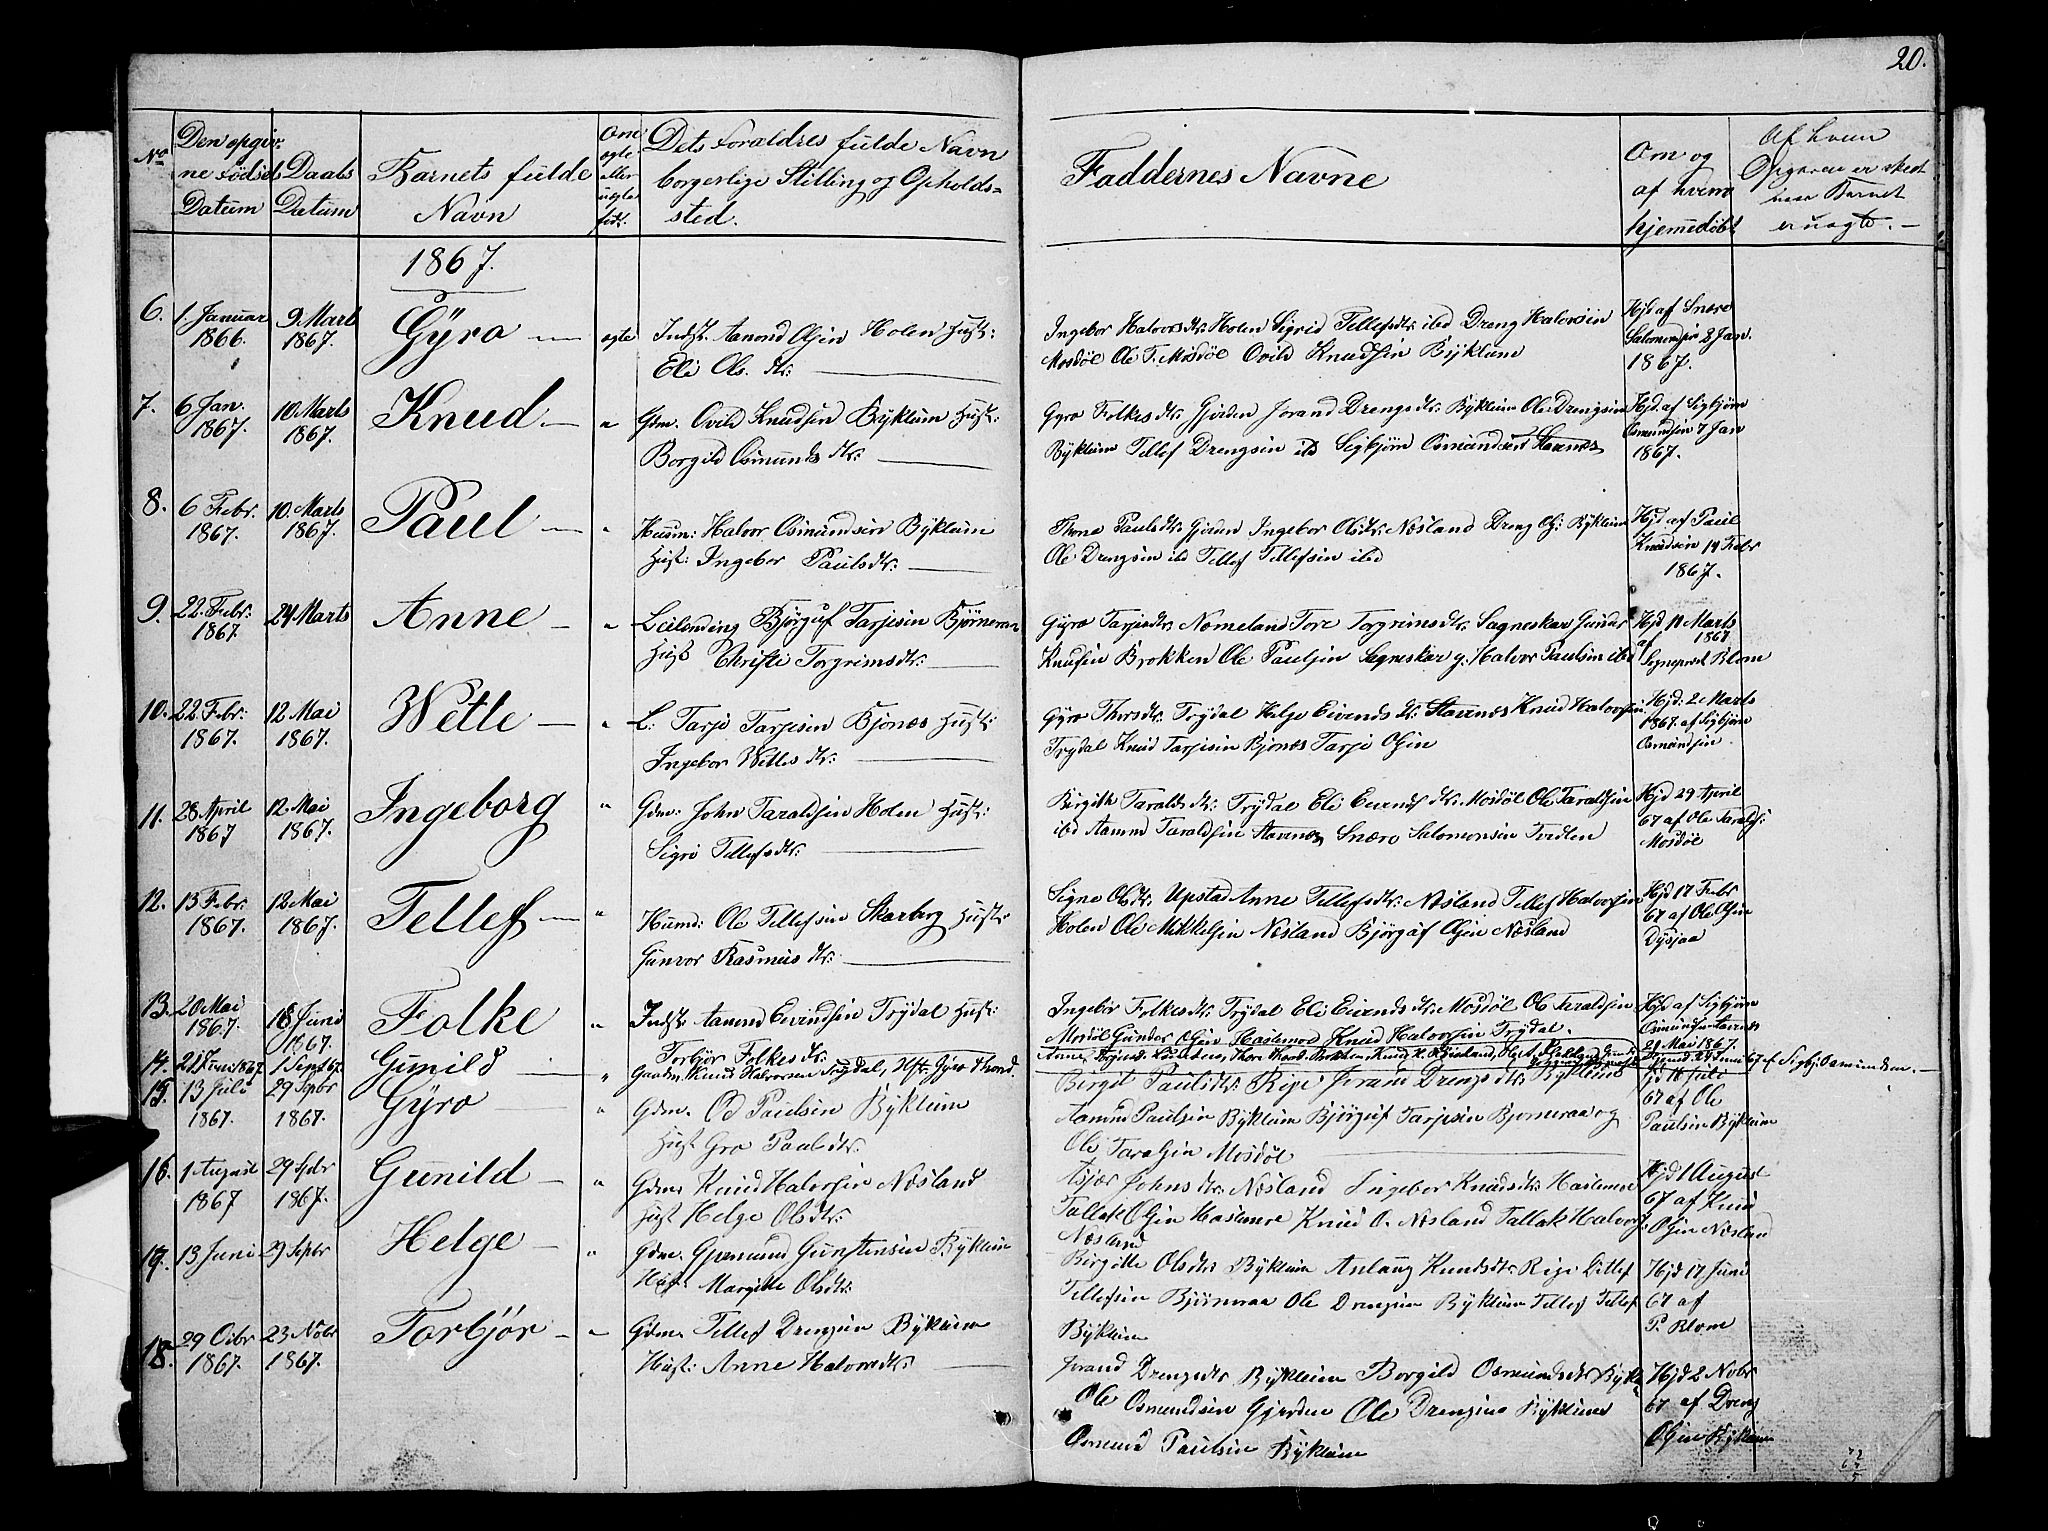 20.
No
Den opgiv:
ne Fødsels
Datum
Daabs
Datum
Barnets fulde
Navn
Om
ægte
eller
uægte
født.
Dets Foraldres fulde Navn
borgerlige Stilling og Opholds=
sted.
Faddernes Navne
Om og
af hvem
hjemmedøbt
Af hvem
Opgaven er skeet
naar Barnet
er uægte. —
1867.
6. 1. Januar 9 Marts Gÿro — ægte Indst. Aamond Olsin Holen Hust:
1866. 1867. Eli Ols. dtr:
Ingebor Halvorsdtr: Holen Sigrid Tellefsdtr: ibd Dreng Halvorsin
Mosdöl Ole T. Mosdöl Ovild Knudsin Bÿkleim
Hjd af Snero
Salomonsin 2 Jan.
1867.
7. 6 Jan. 10 Marts Knud — " Gdm. Ovild Knudsin Bÿkleim Hust:
1867. 1867. Borgild Osmunds dtr:
Gyro Folkesdtr: Gjerden Jorand Drengsdtr: Bÿkleim Ole Drengsin
Bÿkleim Tellef Drengsin ibd Sigbjörn Osmundsin Stavnes
Hjd. af Sigbjörn
Osmundsin 7 Jan
1867.
8. 6 Febr. 10. Marts Paul — " Husm: Halvor Osmundsin Bÿkleim
1867. 1867. Hust: Ingebor Paulsdtr:
Thone Paulsdtr: Gjerden Ingebor Olsdtr: Næsland Dreng Ols: Bÿkleim
Ole Drengsin ibd Tellef Tellefsin ibd
Hjd af Paul
Knudsin 14 Febr
1867.
9. 22. Febr: 24 Marts Anne — " Leilending Björguf Tarjesin Björneraa
1867. Hust Christi Torgrimsdtr:
Gÿro Tarjesdtr: Nomeland Tore Torgrimsdtr: Sagneskar Gunder
Knusin Brokken Ole Paulsin Sagneskar g: Halvor Paulsin ibd
Hjd 11 Marts
1867
af
Sogneprest Blom
10. 22. Febr: 12 Mai Wetle — " L: Tarje Tarjesin Bjönes Hust:
1867. 1867. Ingebor Wetles dtr:
Gÿro Thorsdtr: Trÿdal Helge Eivends dtr: Stavnes Knud Halvorsin
Trÿdal Knud Tarjesin Bjönes Tarje Olsin
Hjd. 2 Marts
1867. af Sigbjörn
Osmundsin.
11. 28. April 12. Mai Ingeborg " Gdm: John Taraldsin Holen Hust:
1867 1867. Sigro Tellefsdtr:
Birgith Taraldsdtr: Trÿdal Eli Eivendsdtr: Mosdöl Ole Taraldsin
ibd Aamund Taraldsin Stavnes Snæro Salomonsin Tvedten
Hjd 29 April
67 af Ole Taralds:
Mosdöl
12. 13 Febr. 12 Mai Tellef — " Husmd: Ole Tellefsin Skarberg Hust:
1867. 1867. Gunvor Rasmus dtr:
Signe Olsdtr: Upstad Anne Tellefsdtr: Næsland Tellef Halvorsin
Holen Ole Mikkelsin Næsland Björguf Olsin Næsland
Hjd 17 Febr
67 af Ole Olsin
Dÿsjaa
13. 20 Mai 18 Juni Folke " Indst: Aamund Eivindsin Trÿdal Hust:
1867. 1867. Torbjör Folkesdtr:
Ingebor Folkesdtr: Trÿdal Eli Eivendsdtr: Mosdöl Ole Taraldsin
Mosdöl Gunder Olsin Haslemo Knud Halvorsin Trÿdal.
Hjd af Sigbjörn
Osmundsin Stavnes
21 Mai 1867.
14. 21 Juni 1867. 1 Septr 67. Gunild — " Gaardm. Knud Halvorsen Trÿdal, Hst. Gÿro Thord.
Hjemd. 23 Juni 67 af Sigbj. Osmundsen. —
15. 13 Juli 29 Spbr Gÿro — " Gdm. Od Paulsin Bÿkleim
1867. 1867. Hust Gro Paulsdtr:
Birgit Paulsdtr: Rige Jorand Drengsdtr: Bÿkleim
Aamund Paulsin Bÿkleim Björguf Tarjesin Bjorneraa og
Ole Taralsin Mosdöl
Hjd 16 Juli
67 af Ole
Paulsin Bÿkleim
16. 1 August 29 Spbr Gunild — " Gdm. Knud Halvorsin Næsland
1867 1867. Hust Helge Olsdtr:
Asjær Johnsdtr: Næsland Ingebor Knudsdtr: Haslemoe
Tallak Olsin Haslemoe Knud O. Næsland Tallak Halvors:
Næsland
Hjd 1 August
67 af Knud
Olsin Næsland
17. 13 Juni 29 Sepbr Helge — " Gdm. Gjermund Gunstensin Bÿkleim
Hust Margitte Olsdtr:
Birgitte Olsdtr: Bÿkleim Anlaug Knudsdtr: Rige Ditlef
Tellefsin Björneraa Ole Drengsin Bÿkleim Tellef Tellef
Bÿkleim
Hjd 17 Juni
67 af
P. Blom
18. 29 Octbr 23 Nobr Torbjör — " Gdm. Tellef Drengsin Bÿkleim
1867. 1867. Hust: Anne Halvorsdtr:
Jorand Drengsdtr Bÿkleim Borgild Osmundsdtr Bÿkl:
Ole Osmundsin Gjerden Ole Drengsin Bÿkleim
Osmund Paulsin Bÿkleim
Hjd 2 Nobr
67 af Dreng
Olsin Bÿkleim